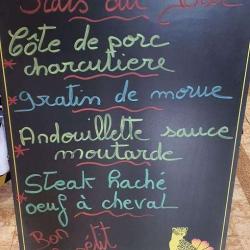 Plats du Jour
Côte de porc
charcutiere
* gratin de morue
Andouillette sauce
moutarde
* Steak haché
* oeuf à cheval
Bon